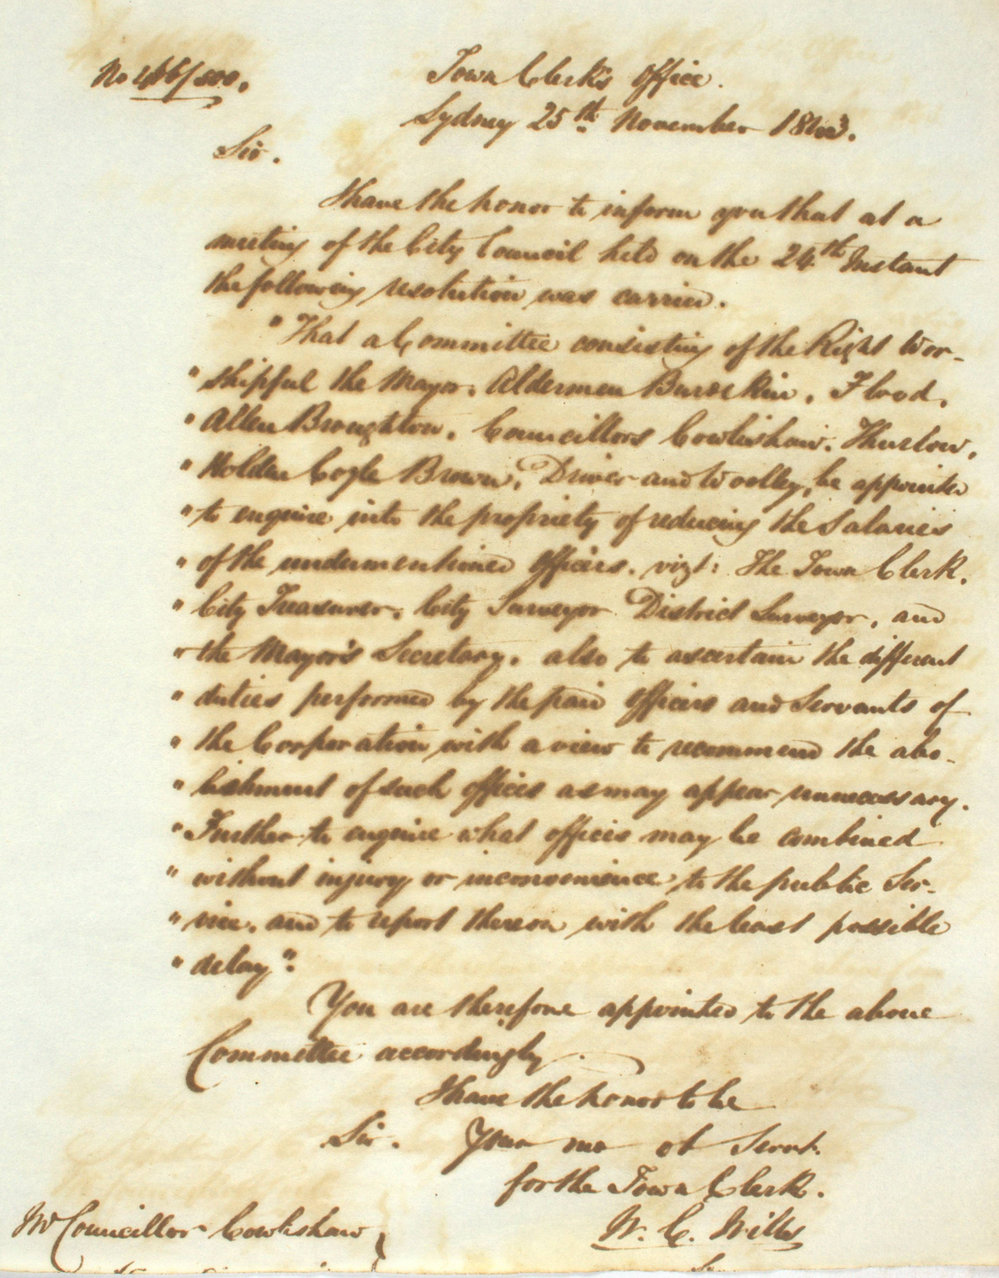 No 446/800.
Town Clerk's Office.
Sydney 25th November 1843.
Sir.
I have the honor to inform you that at a
meeting of the City Council held on the 24th Instant
the following resolution was carried.
"That a Committee consisting of the Right Wor-
" shipful the Mayor, Aldermen Burdekin, Flood,
" Allen Broughton, Councillors Cowlishaw, Thurlow,
" Holden Coyle Brown, Driver and Woolley, be appointed
" to enquire into the propriety of reducing the Salaries
" of the undermentioned Officers. vizt: The Town Clerk.
" City Treasurer, City Surveyor District Surveyor, and
" the Mayor's Secretary, also to ascertain the different
" duties performed by the paid Officers and Servants of
" the Corporation with a view to recommend the abo-
" lishment of such offices as may appear unnecessary.
" Further to enquire what offices may be combined
" without injury or inconvenience to the public Ser-
" vice, and to report thereon with the least possible
" delay".
You are therefore appointed to the above
Committee accordingly.
I have the honor to be
Sir. Your mo ob Servt.
for the Town Clerk.
W. C. Wills
Mr Councillor Cowlishaw